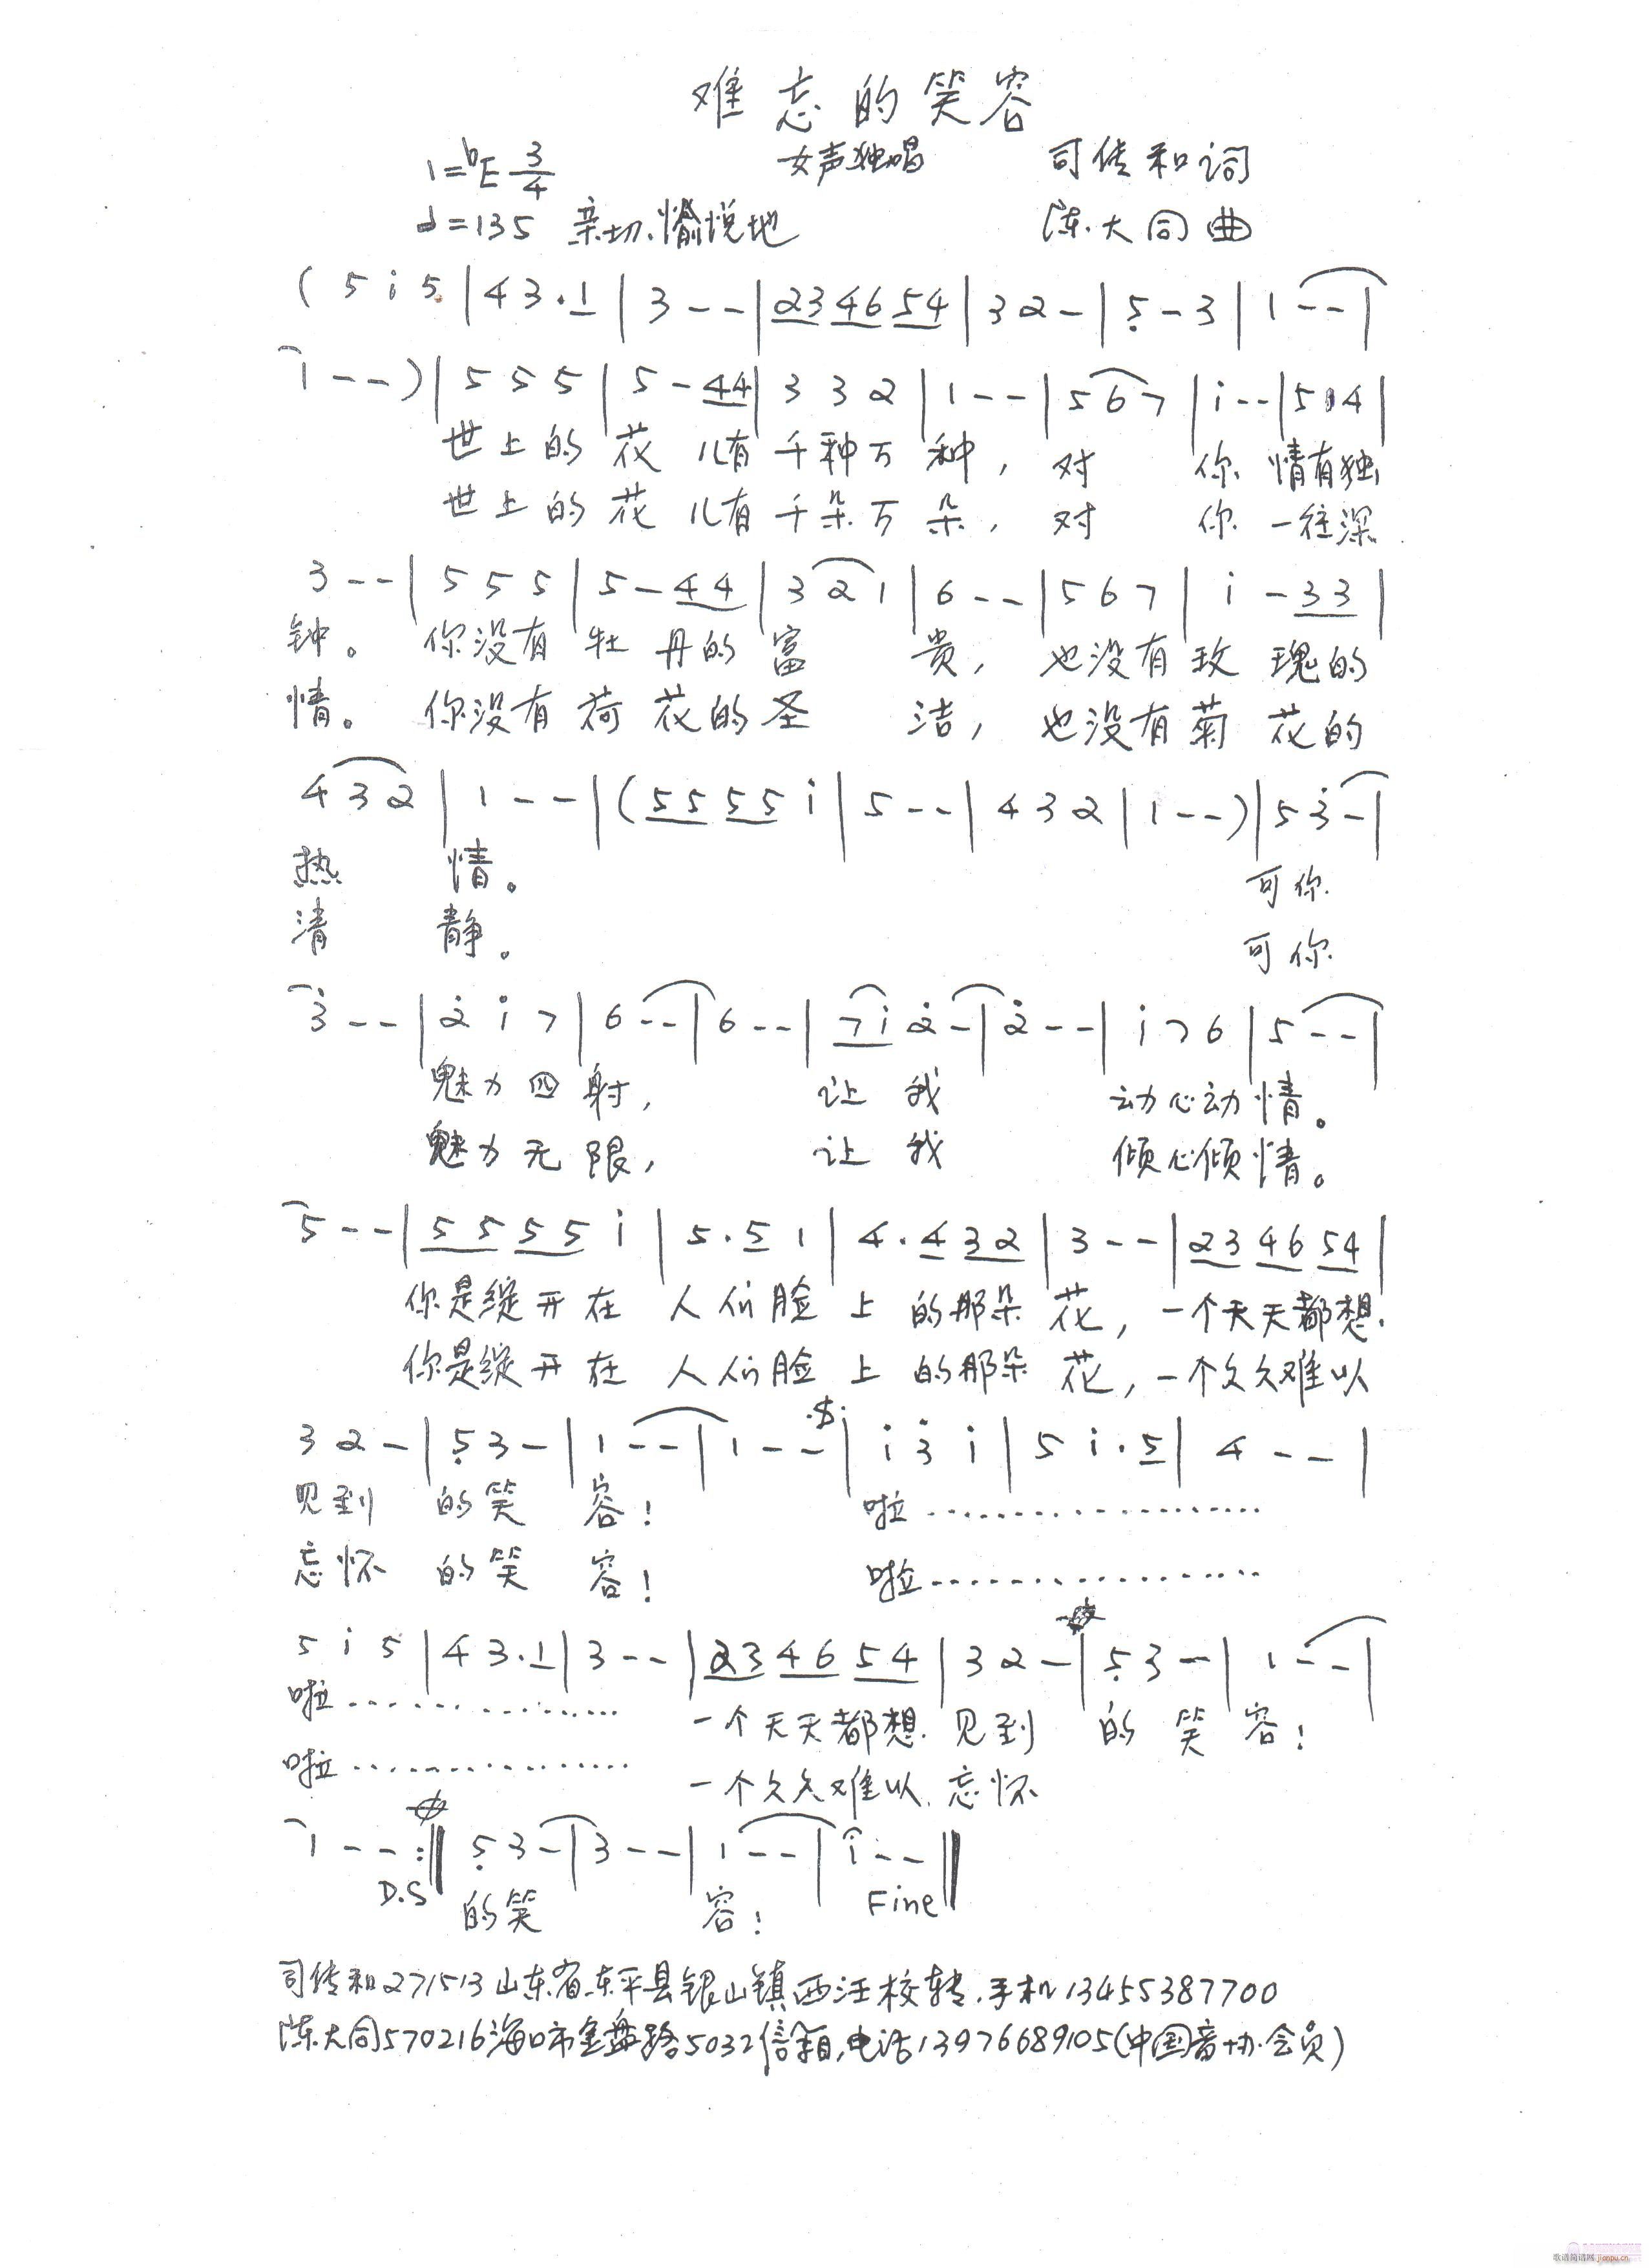 难忘的笑容
1=♭E 3/4 女声独唱 司传和词
♩=135 亲切、愉悦地 陈大同曲
( 5 i 5 | 4 3 . 1 | 3 - - | 2 3 4 6 5 4 | 3 2 - | 5̣ - 3 | 1 - - |
1 - - ) | 5 5 5 | 5 - 4 4 | 3 3 2 | 1 - - | 5 6 7 | i - - | 5 1 4 |
世上的花儿有千种万种，对你情有独
世上的花儿有千朵万朵，对你一往深
3 - - | 5 5 5 | 5 - 4 4 | 3 2 1 | 6 - - | 5 6 7 | i - 3 3 |
钟。你没有牡丹的富贵，也没有玫瑰的
情。你没有荷花的圣洁，也没有菊花的
4 3 2 | 1 - - | ( 5 5 5 5 i | 5 - - | 4 3 2 | 1 - - ) | 5 3̇ - |
热情。 可你
清静。 可你
3̇ - - | 2̇ i 7 | 6 - - | 6 - - | 7 i 2̇ - | 2̇ - - | i 7 6 | 5 - - |
魅力四射，让我动心动情。
魅力无限，让我倾心倾情。
5 - - | 5 5 5 5 i | 5 . 5 1 | 4 . 4 3 2 | 3 - - | 2 3 4 6 5 4 |
你是绽开在人们脸上的那朵花，一个天天都想
你是绽开在人们脸上的那朵花，一个久久难以
3 2 - | 5̣ 3 - | 1 - - | 1 - - | i 3̇ i | 5 i . 5 | 4 - - |
见到的笑容！ 啦…………………
忘怀的笑容！ 啦…………………
5 i 5 | 4 3 . 1 | 3 - - | 2 3 4 6 5 4 | 3 2 - | 5̣ 3 - | 1 - - |
啦……………… 一个天天都想见到的笑容！
啦……………… 一个久久难以忘怀
1 - - :‖ 5̣ 3 - | 3 - - | 1 - - | i - - ‖
D.S 的笑容！ Fine
司传和271513山东省东平县银山镇西汪校转.手机13455387700
陈大同570216海口市金盘路5032信箱,电话13976689105(中国音协会员)
歌谱简谱网 jianpu.cn